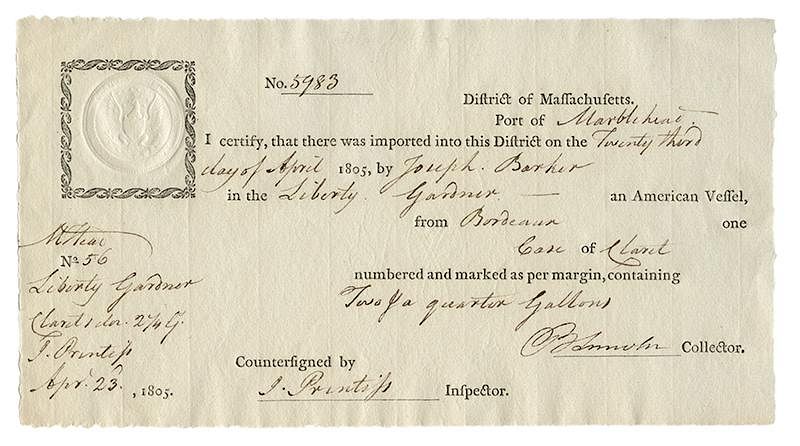 No. 5983
Diſtrict of Maſſachuſetts.
Port of Marblehead.
I certify, that there was imported into this Diſtrict on the Twenty third
day of April 1805, by Joseph Barker
in the Liberty Gardner an American Veſſel,
from Bordeaux one
Case of Claret
numbered and marked as per margin, containing
Two & a quarter Gallons
B Lincoln Collector.
Counterſigned by
J. Printiſs Inſpector.
No 56
Liberty Gardner
Claret 2¼ G.
J. Printiſs
Apr. 23d, 1805.